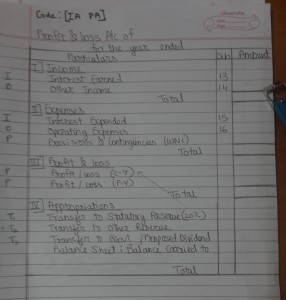 Code: [IA PA]
Profit & Loss A/c of
for the year ended
Particulars Sch Amount
I] Income
I Interest Earned 13
O Other Income 14
Total
II] Expenses
I Interest Expended 15
O Operating Expenses 16
P Provisions & Contingencies (UNI)
Total
III] Profit & loss
P Profit / loss (C.Y) =
P Profit / loss (P.Y)
Total
IV] Appropriations
T₁ Transfer to Statutory Reserve (20%)
T₂ Transfer to Other Revenue
T₃ Transfer to Govt / Proposed Dividend
Balance Sheet: Balance Carried to
Total